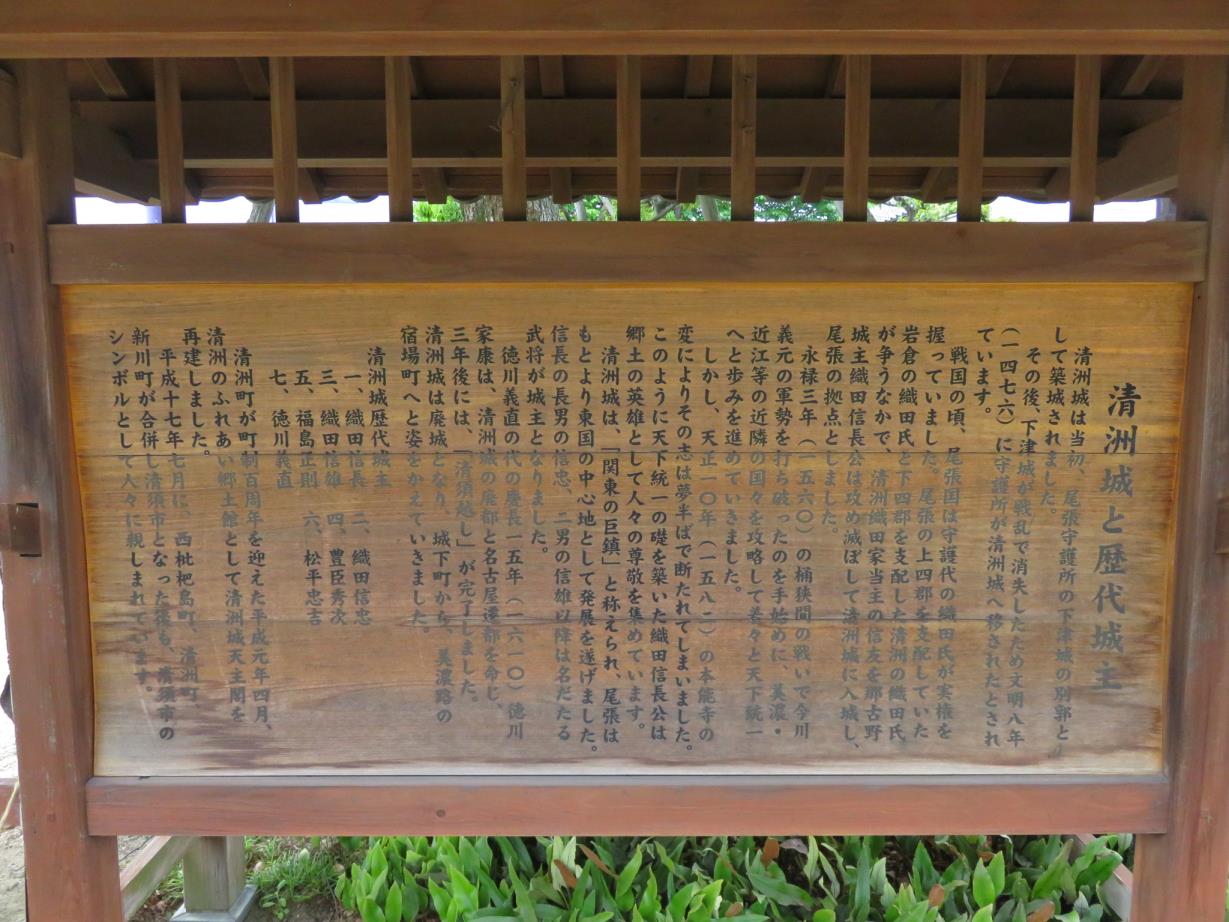 清洲城と歴代城主
清洲城は当初、尾張守護所の下津城の別郭と
して築城されました。
その後、下津城が戦乱で消失したため文明八年
(一四七六)に守護所が清洲城へ移されたとされ
ています。
戦国の頃、尾張国は守護代の織田氏が実権を
握っていました。尾張の上四郡を支配していた
岩倉の織田氏と下四郡を支配した清洲の織田氏
が争うなかで、清洲織田家当主の信友を那古野
城主織田信長公は攻め滅ぼして清洲城に入城し、
尾張の拠点としました。
永禄三年(一五六〇)の桶狭間の戦いで今川
義元の軍勢を打ち破ったのを手始めに、美濃・
近江等の近隣の国々を攻略して着々と天下統一
へと歩みを進めていきました。
しかし、天正一〇年(一五八二)の本能寺の
変によりその志は夢半ばで断たれてしまいました。
このように天下統一の礎を築いた織田信長公は
郷土の英雄として人々の尊敬を集めています。
清洲城は、「関東の巨鎮」と称えられ、尾張は
もとより東国の中心地として発展を遂げました。
信長の長男の信忠、二男の信雄以降は名だたる
武将が城主となりました。
徳川義直の代の慶長一五年(一六一〇)徳川
家康は、清洲城の廃都と名古屋遷都を命じ、
三年後には、「清須越し」が完了しました。
清洲城は廃城となり、城下町から、美濃路の
宿場町へと姿をかえていきました。
清洲城歴代城主
一、織田信長 二、織田信忠
三、織田信雄 四、豊臣秀次
五、福島正則 六、松平忠吉
七、徳川義直
清洲町が町制百周年を迎えた平成元年四月、
清洲のふれあい郷土館として清洲城天主閣を
再建しました。
平成十七年七月に、西枇杷島町、清洲町、
新川町が合併し清須市となった後も、清須市の
シンボルとして人々に親しまれています。